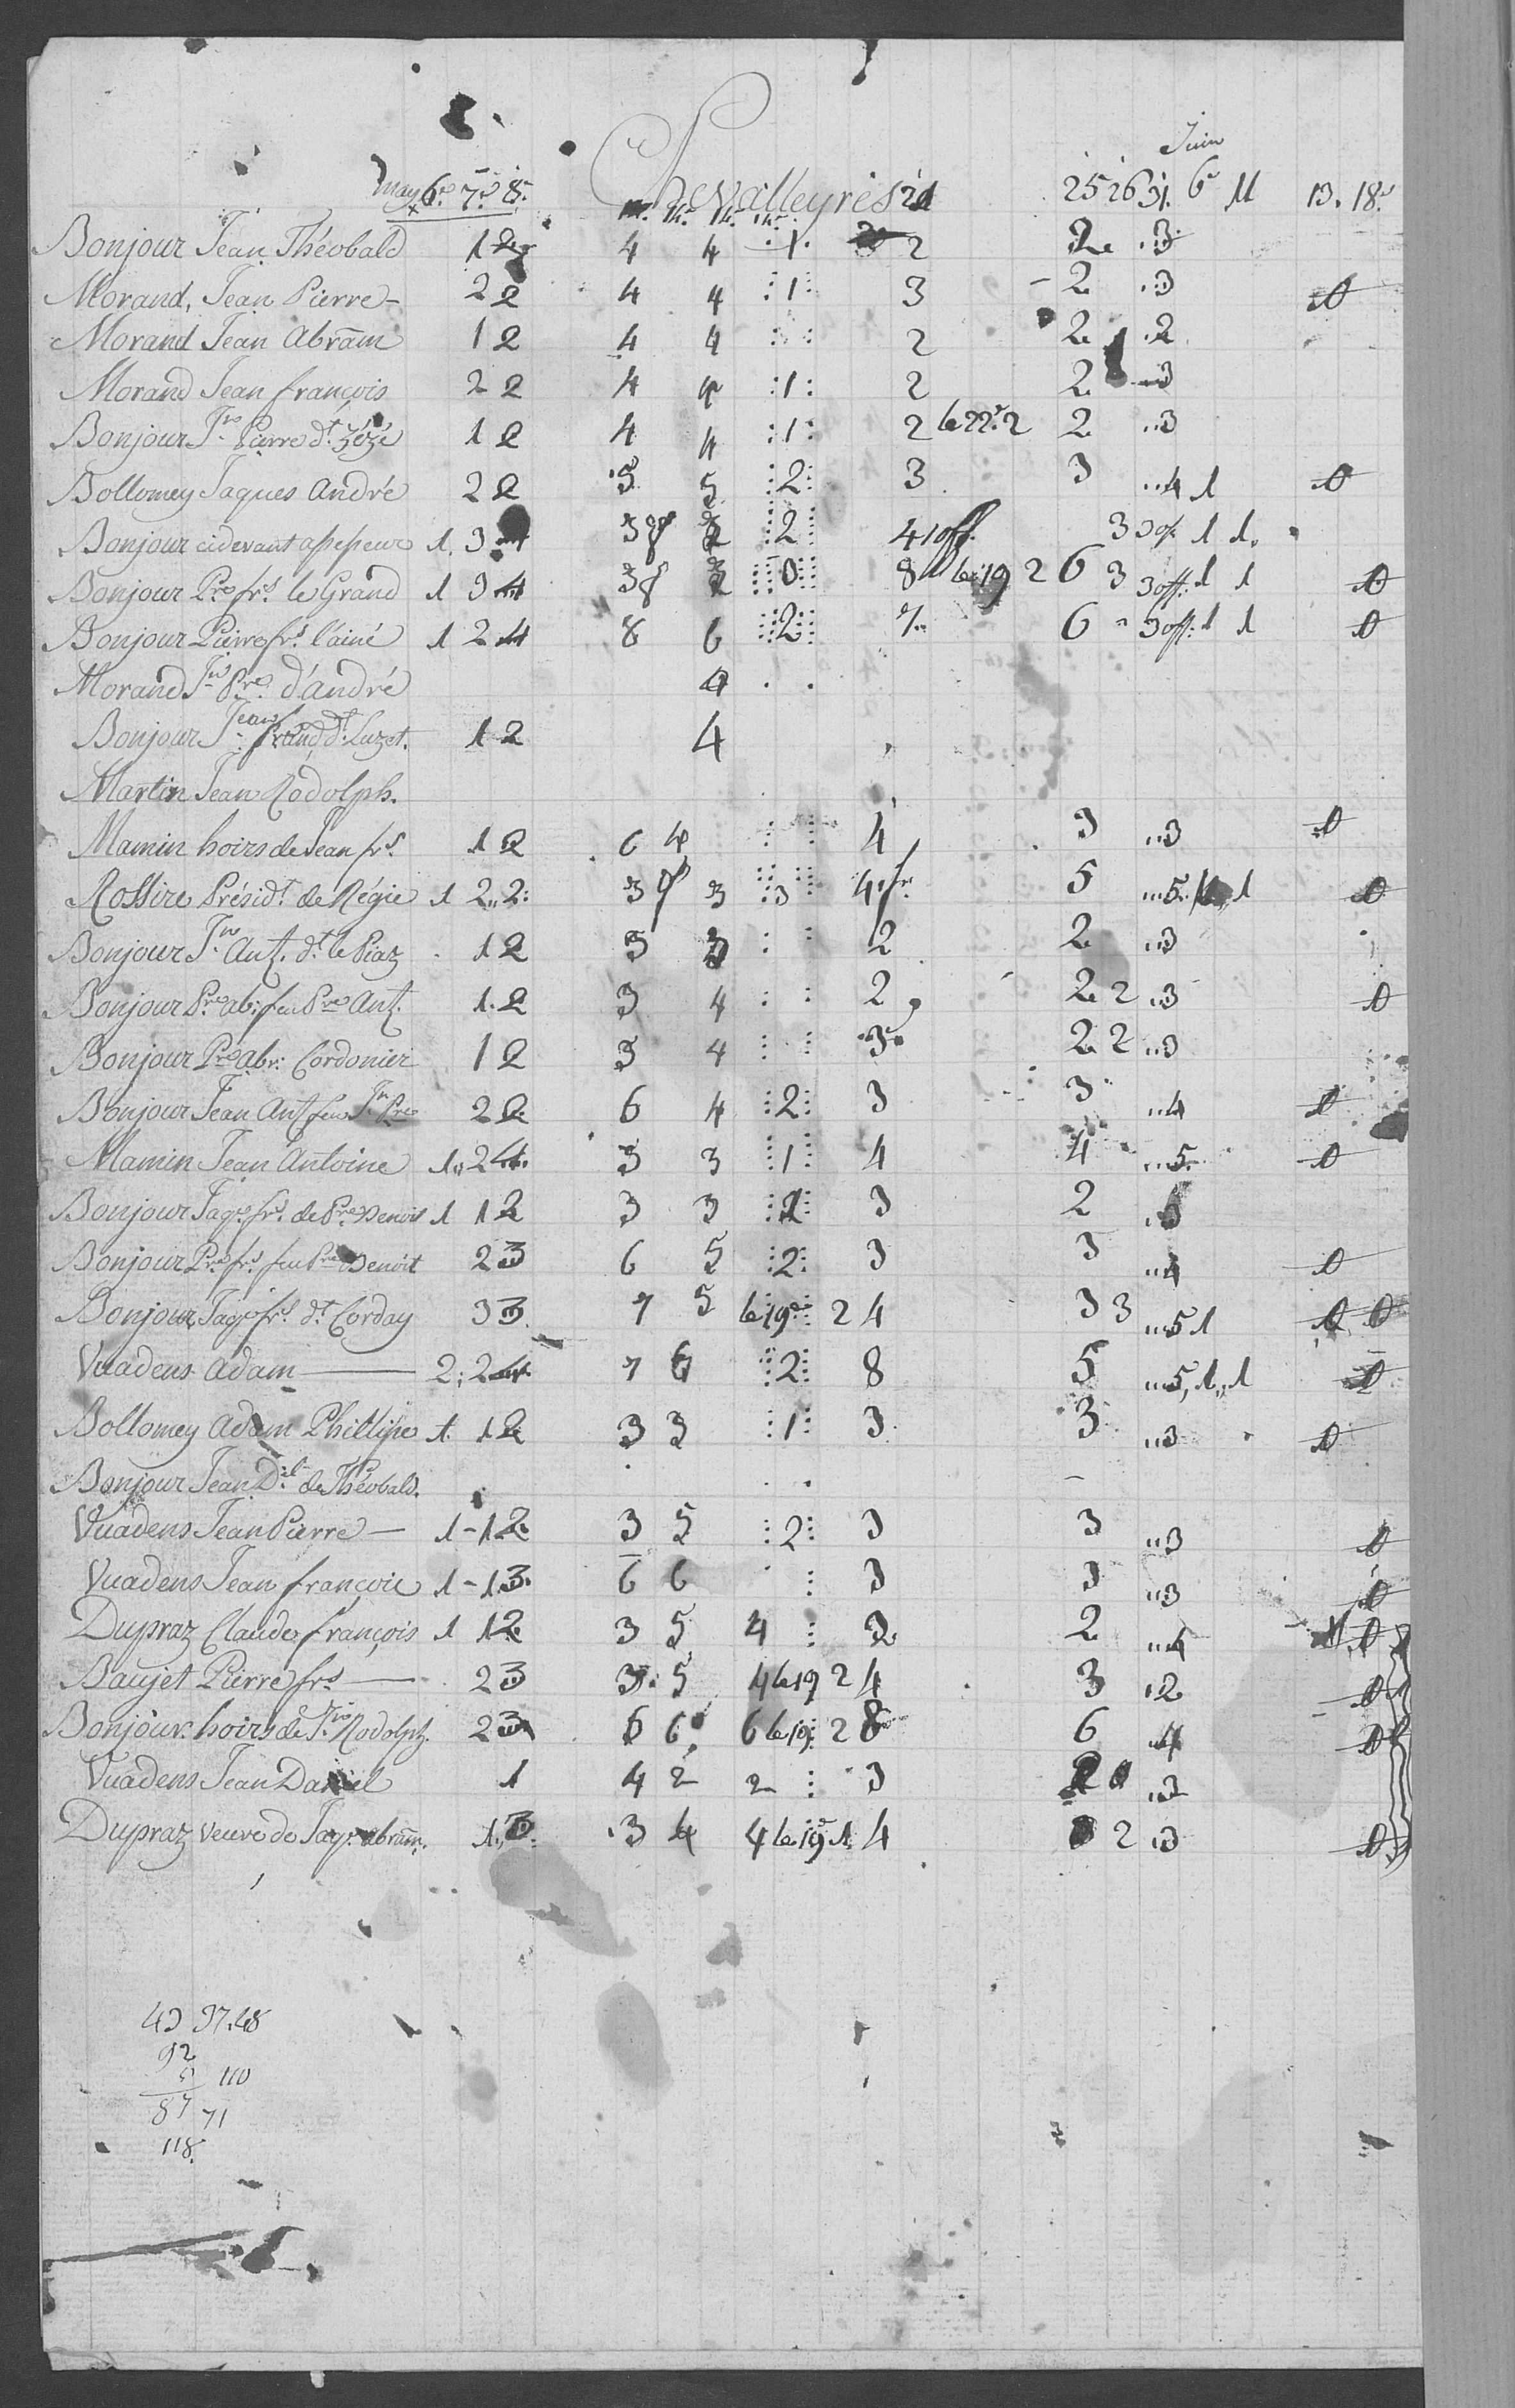 Juin
Chevalleyres
may 6e 7e 8e 21 25 26 31. 6e 11 13. 18e
Bonjour Jean Théobald 1 2 4 4 1 2 2 3
Morand, Jean Pierre 2 2 4 4 1 3 2 3
Morand Jean Abram 1 2 4 4 2 2 2
Morand Jean françois 2 2 4 4 1 2 2 3
Bonjour Jn Pierre dt Zézé 1 2 4 4 1 2 le 22e 2 2 3
Bollomey Jaques André 2 2 5 5 2 3 3 4 1
Bonjour cidevant assesseur 1. 3 2 4 1 off. 3 1 1.
Bonjour Pre frs le Grand 1 3 4 0 8 le 19 2 6 3 3 off: 1 1
Bonjour Pierre frs l'ainé 1 2 4 8 6 2 7 6 3 off: 1 1
Morand Jn Pre d'andré 4
Bonjour Jean franç dt Luzet. 1 2 4
Martin Jean Rodolph.
Mamin hoirs de Jean frs 1 2 6 4 4 3 3
Rossire Présidt de Régie 1 2 2 3 3 3 5 5 1
Bonjour Jn Ant. dt le Piaz 1 2 5 3 2 2 3
Bonjour Pre ab: feu Pre Ant. 1. 2 3 4 2 2 2 3
Bonjour Pre abr: Cordonier 1 2 3 4 3 2 2 3
Bonjour Jean Ant feu Jn Pre 2 2 6 4 2 3 3 4
Mamin Jean Antoine 1 2 4 3 3 1 4 4 5
Bonjour Jaqs frs de Pre Benoit 1 1 2 3 3 2 3 2
Bonjour Pre frs feu Pre Benoit 2 3 6 5 2 3 3 4
Bonjour Jaqs frs dt Corday 3 3 7 5 le 19e 2 4 3 3 5 1
Vuadens Adam 2 2 4 7 6 2 8 5 5, 1 1
Bollomey Adam Phillipe 1. 1 2 3 3 1 3 3 3
Bonjour Jean Dl de Théobald.
Vuadens Jean Pierre 1 - 1 2 3 5 2 3 3 3
Vuadens Jean françois 1 - 1 3 6 6 3 3 3
Dupraz Claude françois 1 1 2 3 5 4 3 2 4
Baujet Pierre frs 2 3 3 5 4 le 19 2 4 3 2
Bonjour hoirs de Jn Rodolph. 2 3 6 6 6 le 19. 2 8 6 4
Vuadens Jean Daniel 1 4 2 2 3 2 3
Dupraz veuve de Jaqs abram. 1 3 3 4 4 le 19e 1. 4 2 3
43 37. 48
92
5 110
87 71
118.